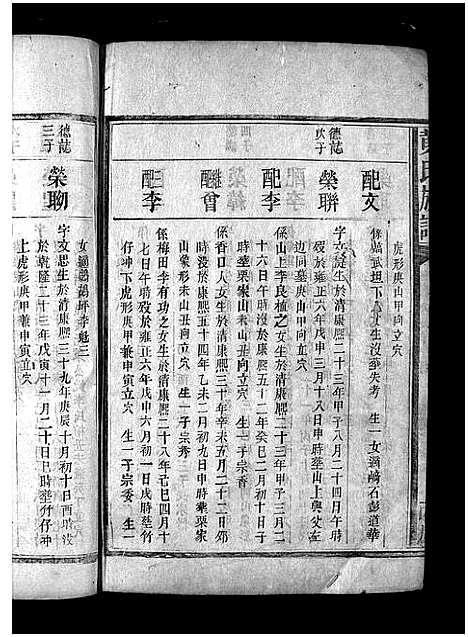 虎形庚山甲向立穴
配文
生沒葬失考 生一女適 石彭道華
德誌次子
榮聯
字文 生於清康熙二十三年甲子八月二十四日午時
歿於雍正六年戊申三月十八日申時葬山上與父左
邊同墓庚山甲向立穴
配李
係山上李良植之女生於清康熙二十三年甲子三月二
十六日午時歿於康熙五十二年癸巳二月初十日子
時葬栗家山未山丑向立穴 生一子宗香
繼曾
係香口人女生於清康熙三十年辛未五月二十二日卯
時沒於康熙五十四年乙未二月初九日申時葬栗家
山象形未山丑向 生一子宗秀
配李
係梅田李有功之女生於清康熙二十八年己巳四月十
七日午時歿於雍正六年戊申六月初一日戌時葬竹
仔神下虎形庚甲兼申寅立穴 生一子宗委
女適 鴣坪李魁三
德誌三子
榮聊
字文思生於清康熙三十九年庚辰十月初十日酉時沒
於乾隆三十三年戊寅十一月二十日巳時葬竹仔神
上虎形庚甲兼申寅立穴
黃氏族譜